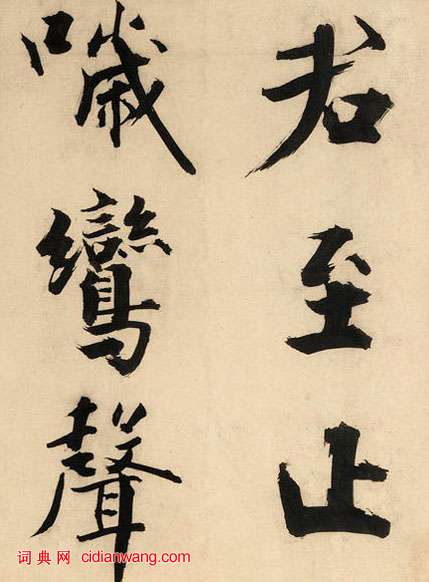 君至止
噦鸞聲
词典网 cidianwang.com